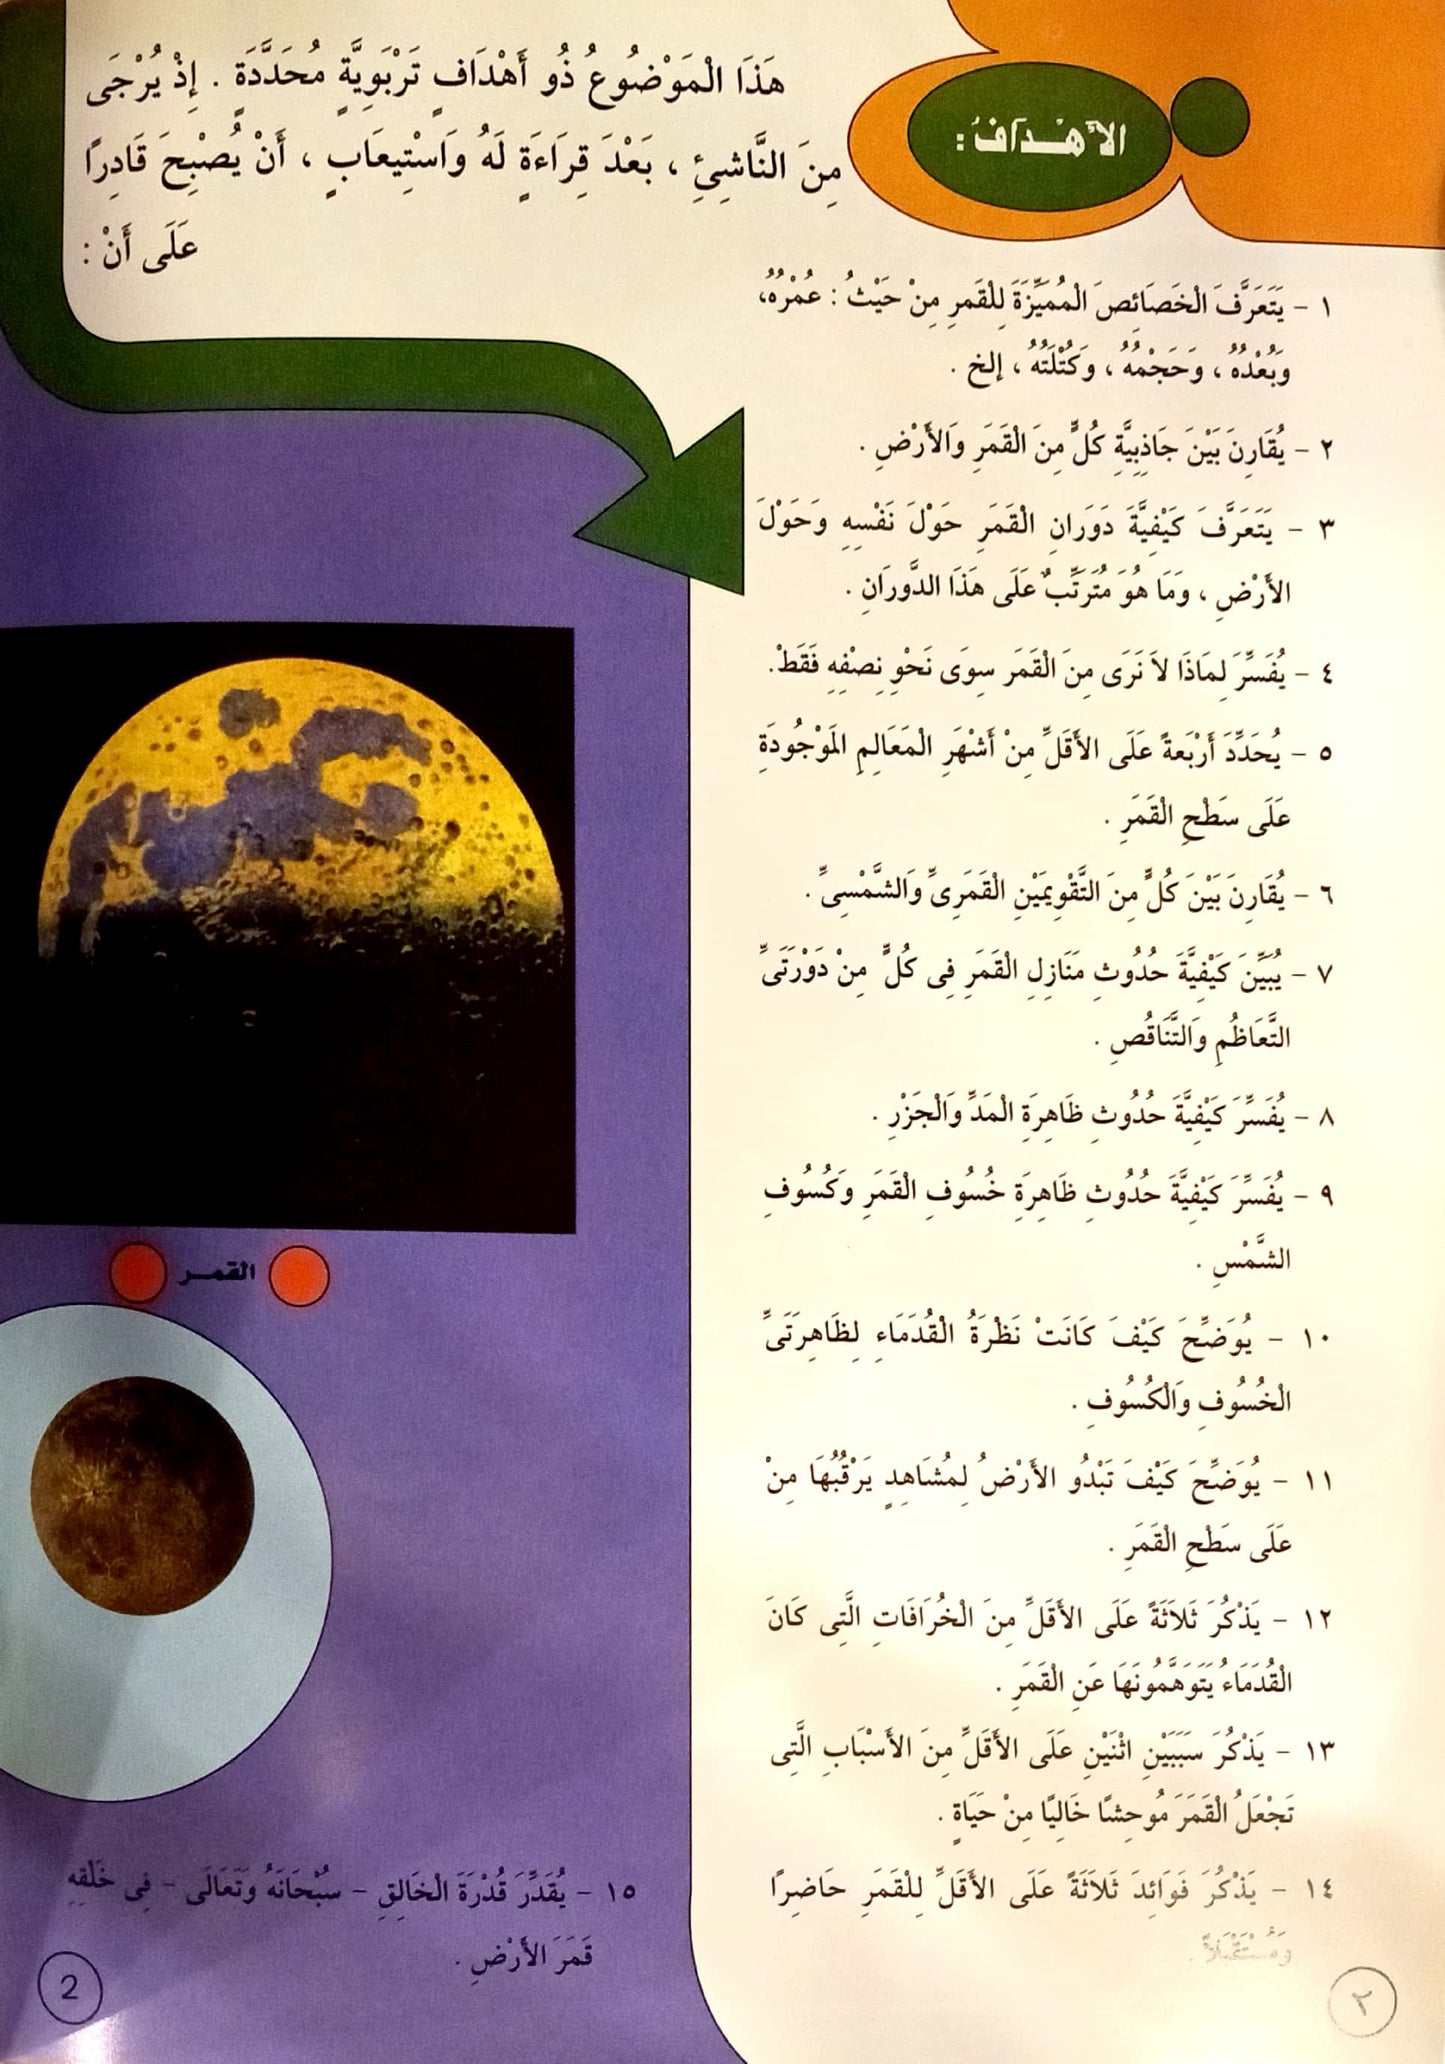 الأَهْدَافُ :
هَذَا الْمَوْضُوعُ ذُو أَهْدَافٍ تَرْبَوِيَّةٍ مُحَدَّدَةٍ . إِذْ يُرْجَى
مِنَ النَّاشِئِ ، بَعْدَ قِرَاءَةٍ لَهُ وَاسْتِيعَابٍ ، أَنْ يُصْبِحَ قَادِرًا
عَلَى أَنْ :
١ - يَتَعَرَّفَ الْخَصَائِصَ الْمُمَيِّزَةَ لِلْقَمَرِ مِنْ حَيْثُ : عُمْرُهُ،
وَبُعْدُهُ ، وَحَجْمُهُ ، وَكُتْلَتُهُ ، إلخ .
٢ - يُقَارِنَ بَيْنَ جَاذِبِيَّةِ كُلٍّ مِنَ الْقَمَرِ وَالأَرْضِ .
٣ - يَتَعَرَّفَ كَيْفِيَّةَ دَوَرَانِ الْقَمَرِ حَوْلَ نَفْسِهِ وَحَوْلَ
الأَرْضِ ، وَمَا هُوَ مُتَرَتِّبٌ عَلَى هَذَا الدَّوَرَانِ .
٤ - يُفَسِّرَ لِمَاذَا لاَ نَرَى مِنَ الْقَمَرِ سِوَى نَحْوِ نِصْفِهِ فَقَطْ.
٥ - يُحَدِّدَ أَرْبَعةً عَلَى الأَقَلِّ مِنْ أَشْهَرِ الْمَعَالِمِ الْمَوْجُودَةِ
عَلَى سَطْحِ الْقَمَرِ .
٦ - يُقَارِنَ بَيْنَ كُلٍّ مِنَ التَّقْوِيمَيْنِ الْقَمَرِىِّ وَالشَّمْسِىِّ .
٧ - يُبَيِّنَ كَيْفِيَّةَ حُدُوثِ مَنَازِلِ الْقَمَرِ فِى كُلٍّ مِنْ دَوْرَتَىِّ
التَّعَاظُمِ وَالتَّنَاقُصِ .
٨ - يُفَسِّرَ كَيْفِيَّةَ حُدُوثِ ظَاهِرَةِ الْمَدِّ وَالْجَزْرِ .
٩ - يُفَسِّرَ كَيْفِيَّةَ حُدُوثِ ظَاهِرَةِ خُسُوفِ الْقَمَرِ وَكُسُوفِ
الشَّمْسِ .
١٠ - يُوَضِّحَ كَيْفَ كَانَتْ نَظْرَةُ الْقُدَمَاءِ لِظَاهِرَتَىِّ
الْخُسُوفِ وَالْكُسُوفِ .
١١ - يُوَضِّحَ كَيْفَ تَبْدُو الأَرْضُ لِمُشَاهِدٍ يَرْقُبُهَا مِنْ
عَلَى سَطْحِ الْقَمَرِ .
١٢ - يَذْكُرَ ثَلاَثَةً عَلَى الأَقَلِّ مِنَ الْخُرَافَاتِ الَّتِى كَانَ
الْقُدَمَاءُ يَتَوَهَّمُونَهَا عَنِ الْقَمَرِ .
١٣ - يَذْكُرَ سَبَبَيْنِ اثْنَيْنِ عَلَى الأَقَلِّ مِنَ الأَسْبَابِ الَّتِى
تَجْعَلُ الْقَمَرَ مُوحِشًا خَالِيًا مِنْ حَيَاةٍ .
١٤ - يَذْكُرَ فَوَائِدَ ثَلاَثَةً عَلَى الأَقَلِّ لِلْقَمَرِ حَاضِرًا
وَمُسْتَقْبَلاً .
القمر
١٥ - يُقَدِّرَ قُدْرَةَ الْخَالِقِ - سُبْحَانَهُ وَتَعَالَى - فِى خَلْقِهِ
قَمَرَ الأَرْضِ .
2
٢